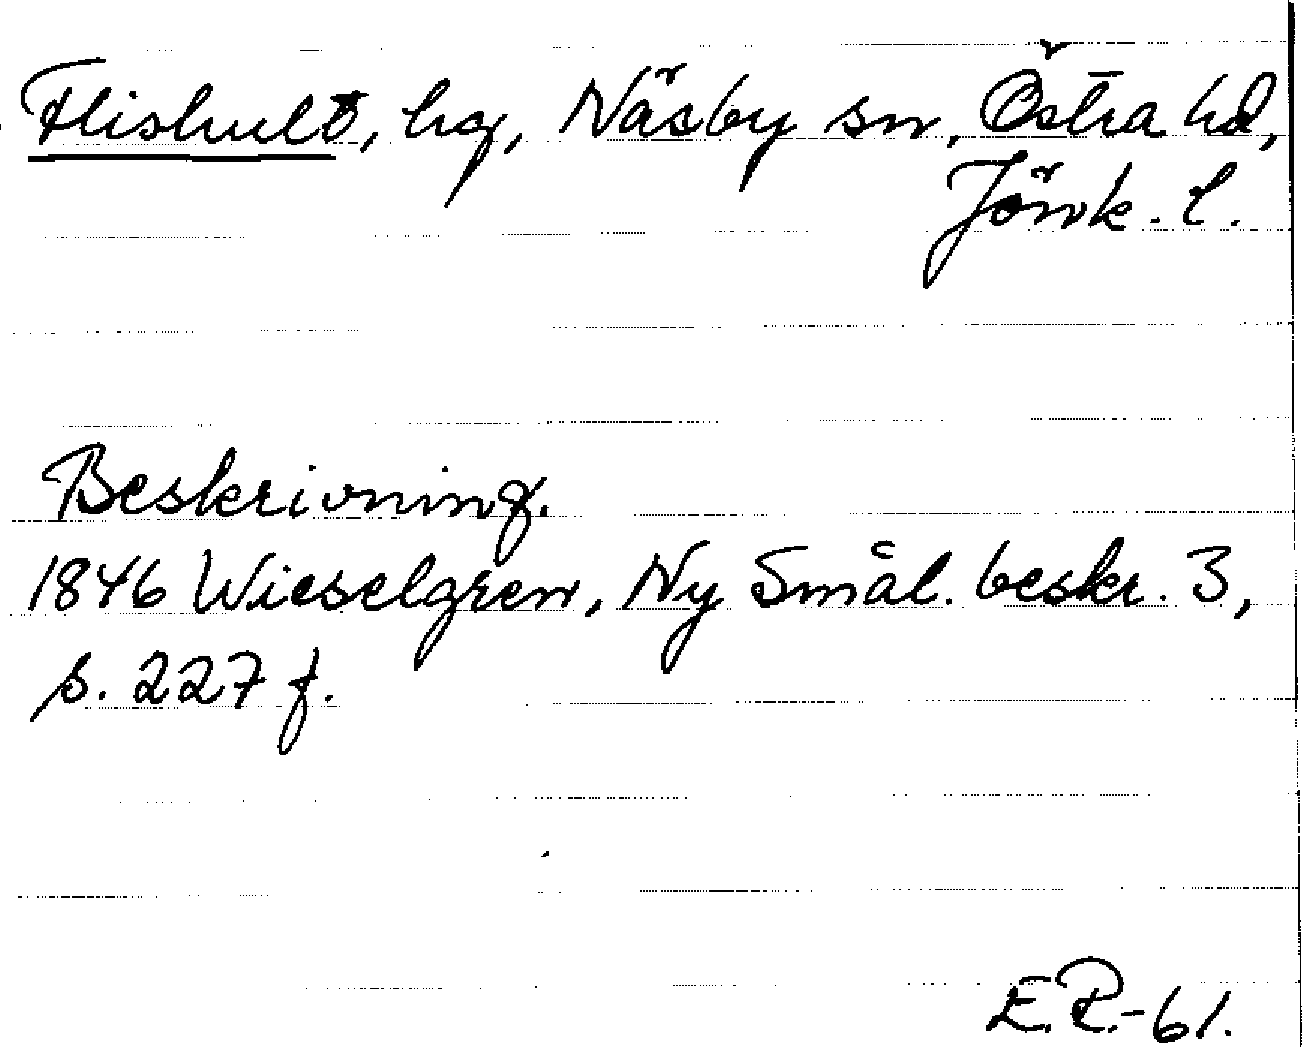 Flishult, hg, Näsby sn, Östra hd,
Jönk. l.
Beskrivning.
1846 Wieselgren, Ny Smål. beskr. 3,
s. 227 f.
E.R.-61.